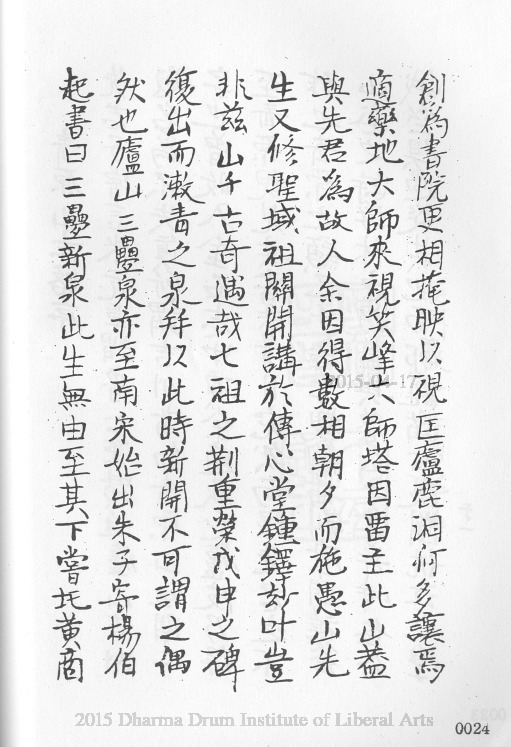 創為書院更相掩映以視匡廬鹿洞何多讓焉
適藥地大師來視笑峰大師塔因畱主此山葢
與先君為故人余因得數相朝夕而施愚山先
生又修聖域祖關開講於傳心堂鍾鐸玅叶豈
非茲山千古奇遇哉七祖之荆重榮戊申之碑
復出而漱青之泉拜以此時新開不可謂之偶
然也廬山三疊泉亦至南宋始出朱子寄楊伯
起書曰三疊新泉此生無由至其下嘗托黃商
2015-04-17
2015 Dharma Drum Institute of Liberal Arts
0024